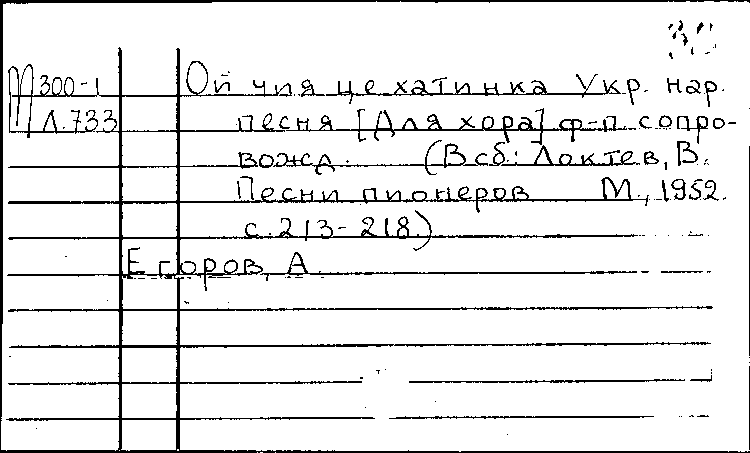 300-1 Ой чия це хатинка Укр. нар.
Л.733 песня [Для хора] ф-п. сопро-
вожд. (В сб.: Локтев, В.
Песни пионеров М., 1952.
с. 213-218.)
Егоров, А.